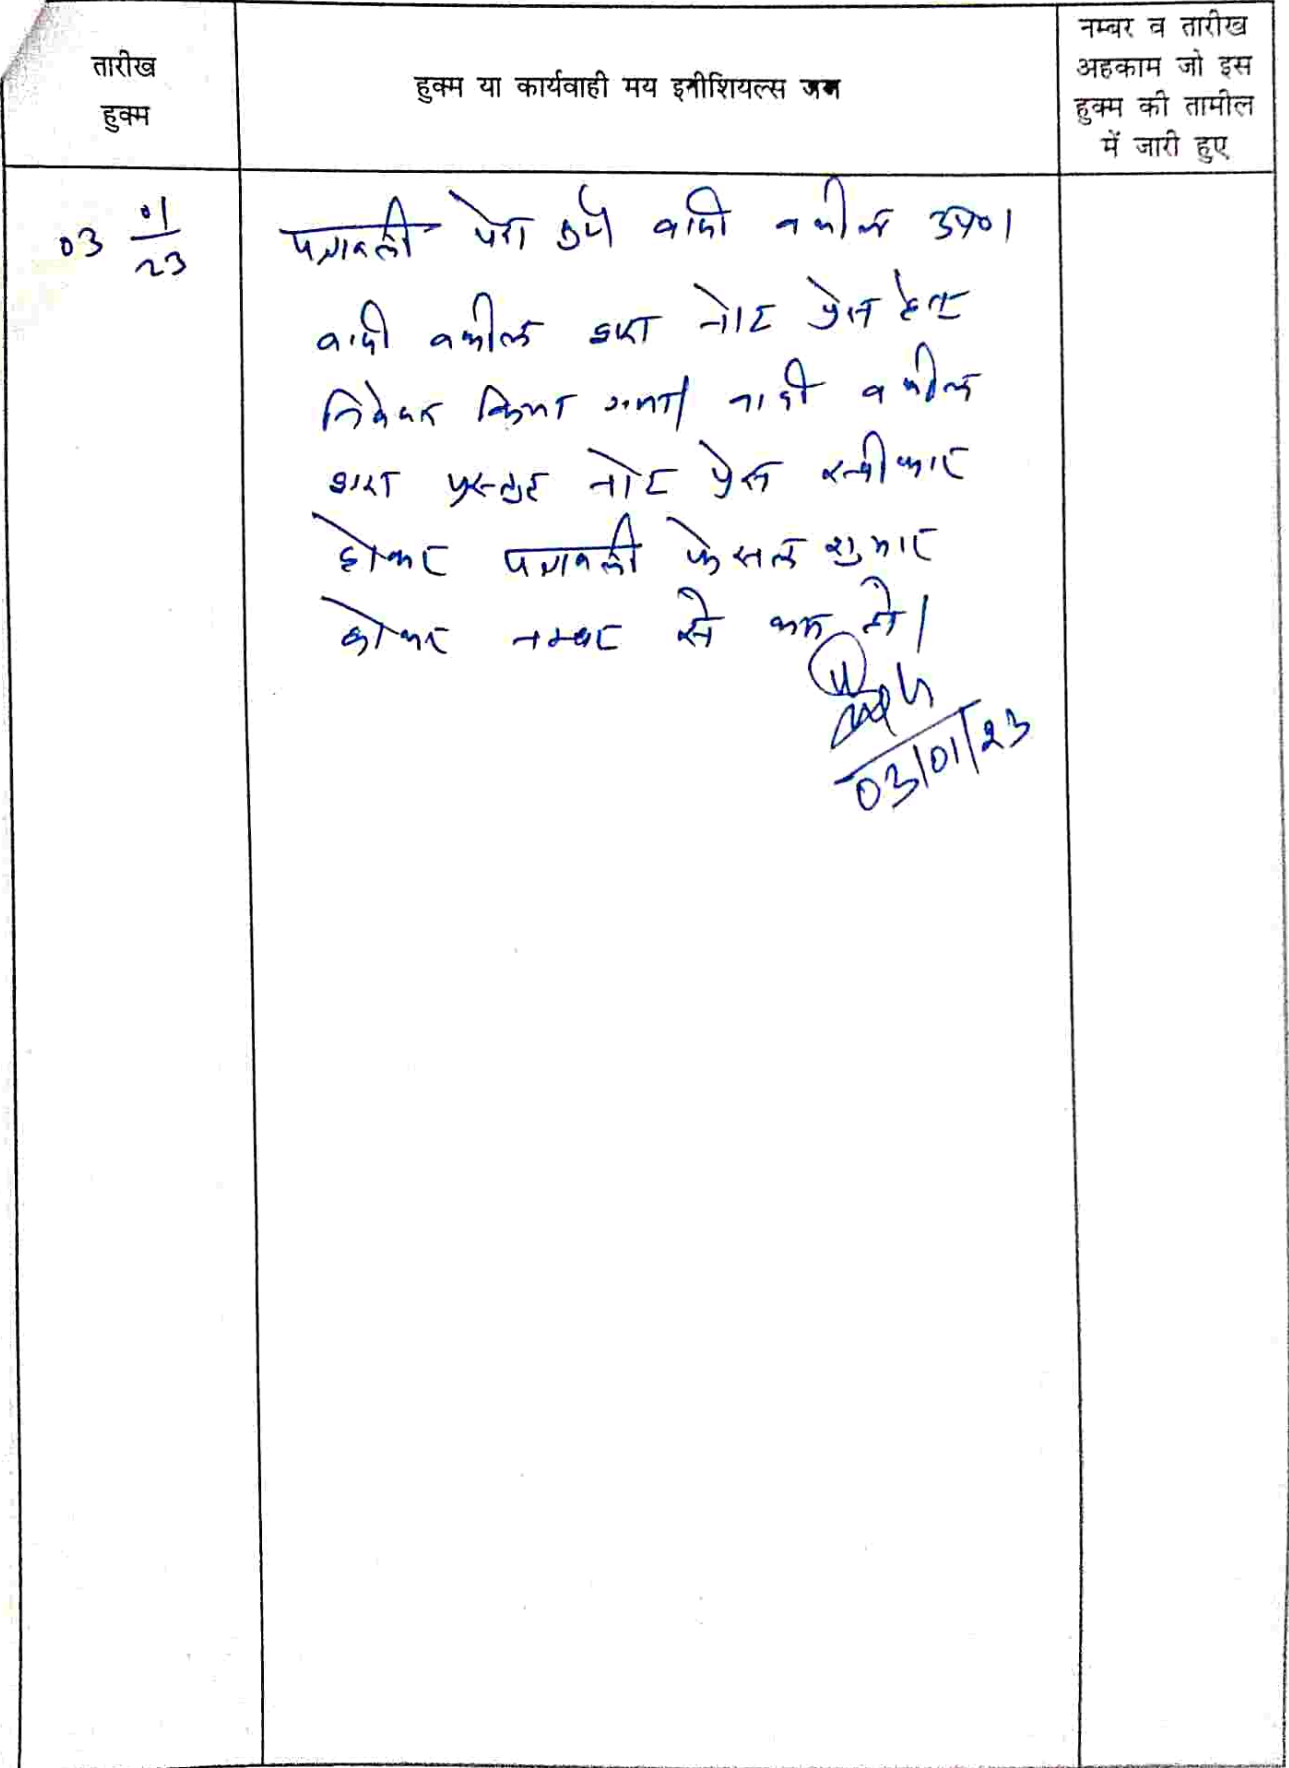 तारीख
हुक्म
हुक्म या कार्यवाही मय इनीशियल्स जज
नम्बर व तारीख
अहकाम जो इस
हुक्म की तामील
में जारी हुए
03 01/23
पत्रावली पेश हुयी वादी वकील उप०।
वादी वकील द्वारा नोट प्रेस हेतु
निवेदन किया गया। वादी वकील
द्वारा प्रस्तुत नोट प्रेस स्वीकार
होकर पत्रावली फैसल शुमार
होकर नम्बर से कम हो।
03/01/23